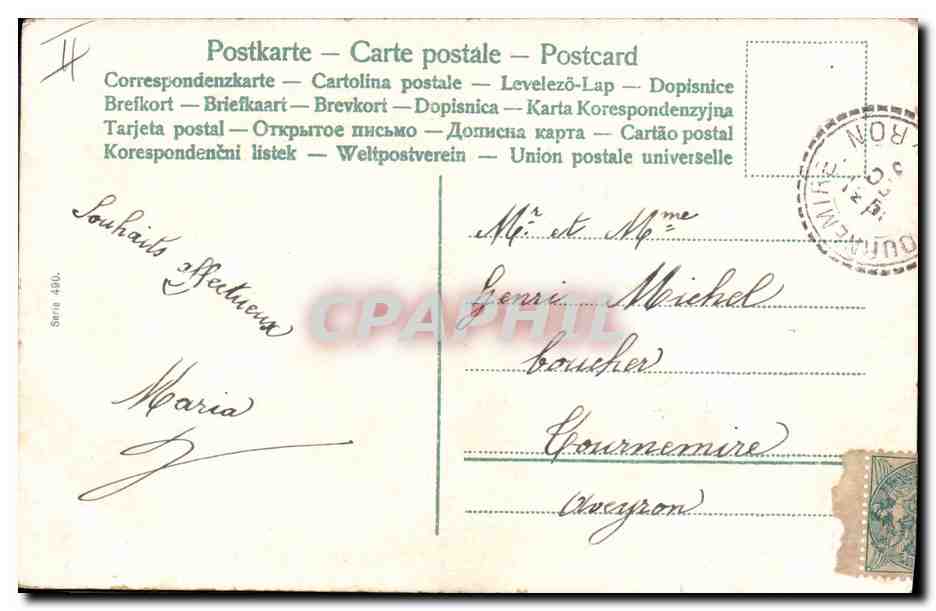 II
Postkarte — Carte postale — Postcard
Correspondenzkarte — Cartolina postale — Levelezö-Lap — Dopisnice
Brefkort — Briefkaart — Brevkort — Dopisnica — Karta Korespondenzyjna
Tarjeta postal — Открытое письмо — Дописна карта — Cartão postal
Korespondenčni listek — Weltpostverein — Union postale universelle
TOURNEMIRE
Souhaits
affectueux
Maria
Serie 490.
CPAPHIL
Mr. et Mme
Genri Michel
boucher
Tournemire
Aveyron